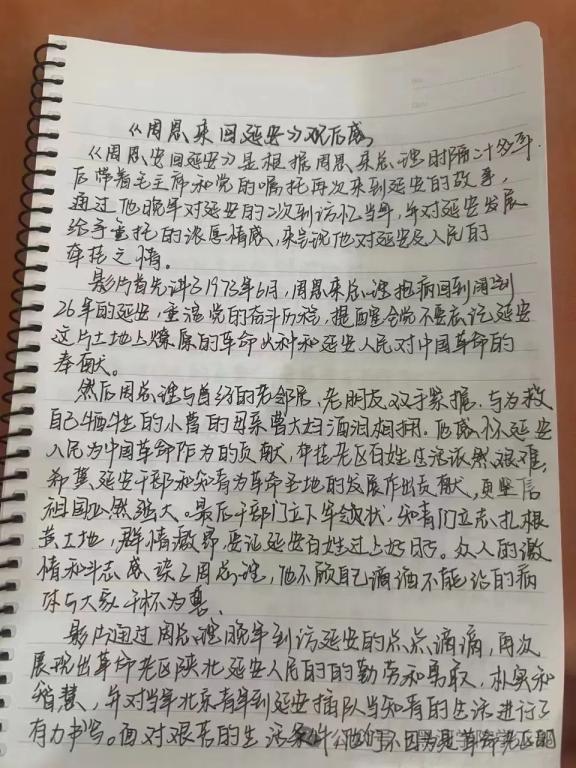 《周恩来回延安》观后感
《周恩安回延安》是根据周恩来总理时隔二十多年
后带着毛主席和党的嘱托再次来到延安的故事，
通过他晚年对延安的二次到访忆当年，并对延安发展
给予重托的浓厚情感，来呈现他对延安及人民的
牵挂之情。
影片首先讲了1973年6月，周恩来总理抱病回到阔别
26年的延安，重温党的奋斗历程，提醒全党不要忘记延安
这片土地上燎原的革命火种和延安人民对中国革命的
奉献。
然后周总理与曾经的老邻居、老朋友双手紧握，与为救
自己牺牲的小曹的母亲曹大妈洒泪相拥。他感怀延安
人民为中国革命作为的贡献，牵挂老区百姓生活依然艰难，
希冀延安干部和知青为革命圣地的发展作出贡献，更坚信
祖国必然强大。最后干部们立下军令状，知青们立志扎根
黄土地，群情激昂，要让延安百姓过上好日子。众人的激
情和斗志感染了周总理，他不顾自己滴酒不能沾的病
体与大家干杯为誓。
影片通过周总理晚年到访延安的点点滴滴，再次
展现出革命老区陕北延安人民的的勤劳和勇敢，朴实和
智慧，并对当年北京青年到延安插队当知青的生活进行了
有力书写。面对艰苦的生活条件他们不因为是革命老区